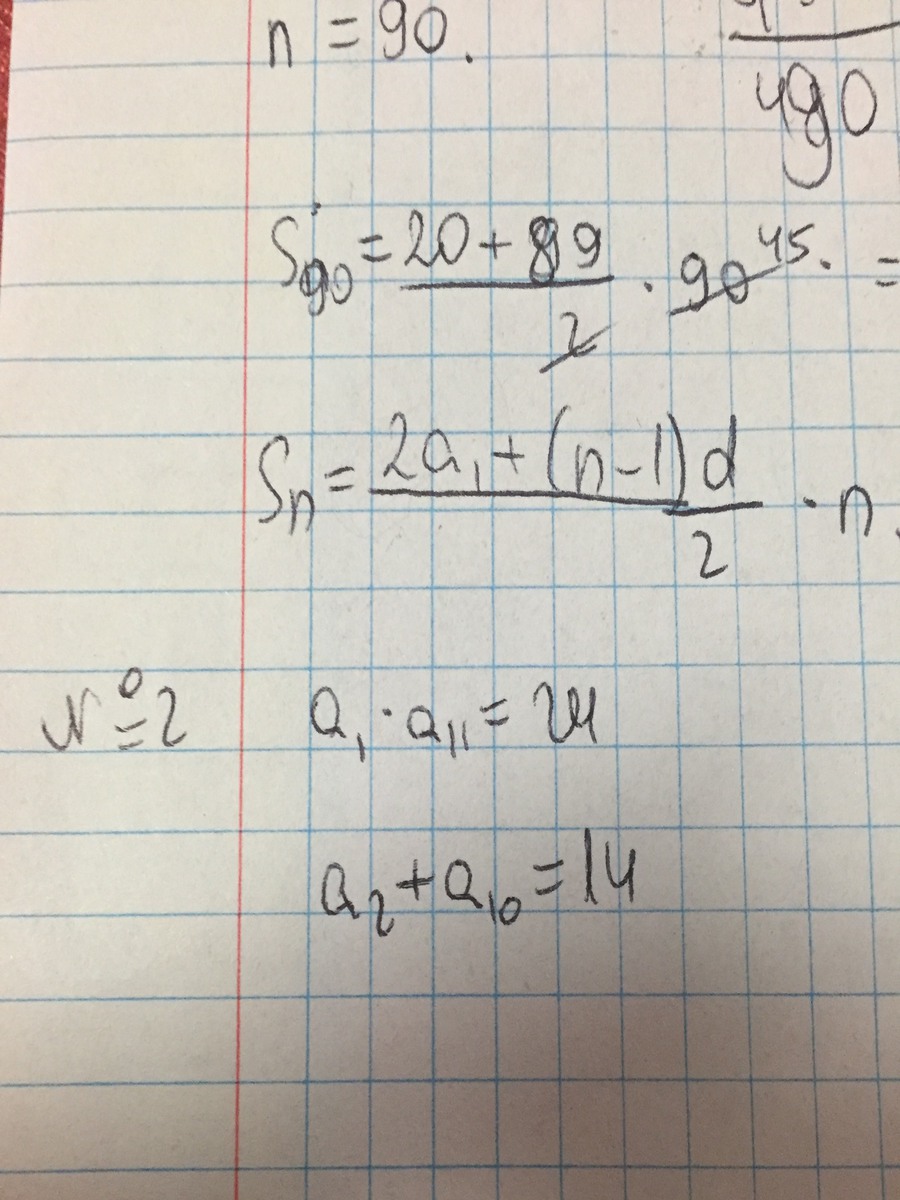 n = 90.
490
S₉₀ = (20 + 89)/2 · 90 45. =
Sₙ = (2a₁ + (n-1)d)/2 · n.
№2 a₁ · a₁₁ = 24
a₂ + a₁₀ = 14